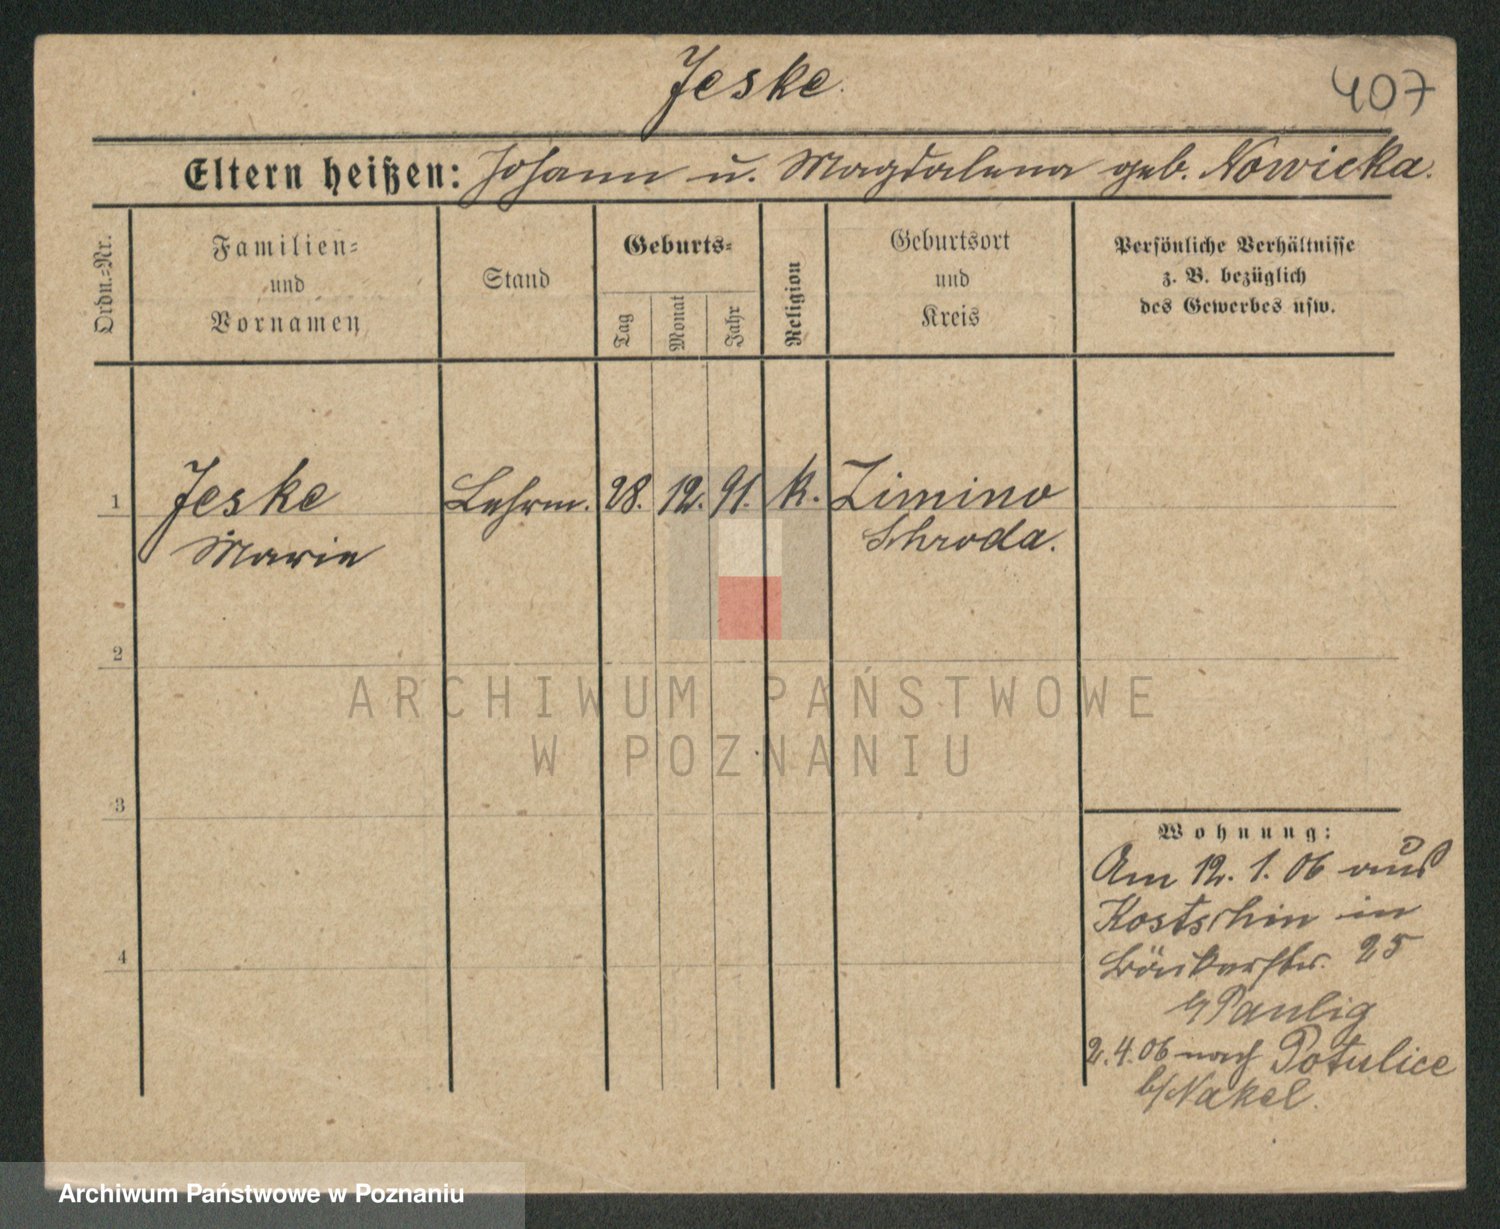 Jeske.
407
Eltern heißen: Johann u. Magdalena geb. Nowicka.
Ordn.-Nr.
Familien-
und
Vornamen
Stand
Geburts-
Tag
Monat
Jahr
Religion
Geburtsort
und
Kreis
Persönliche Verhältnisse
z. B. bezüglich
des Gewerbes usw.
1 Jeske Lehrm. 28. 12. 91. k. Zimino
Marie Schroda.
2
ARCHIWUM PAŃSTWOWE
W POZNANIU
3
Wohnung:
Am 12. 1. 06 aus
Kostschin in
Bäckerstr. 25
b/ Paulig
4
2. 4. 06 nach Potulice
b/Nakel.
Archiwum Państwowe w Poznaniu